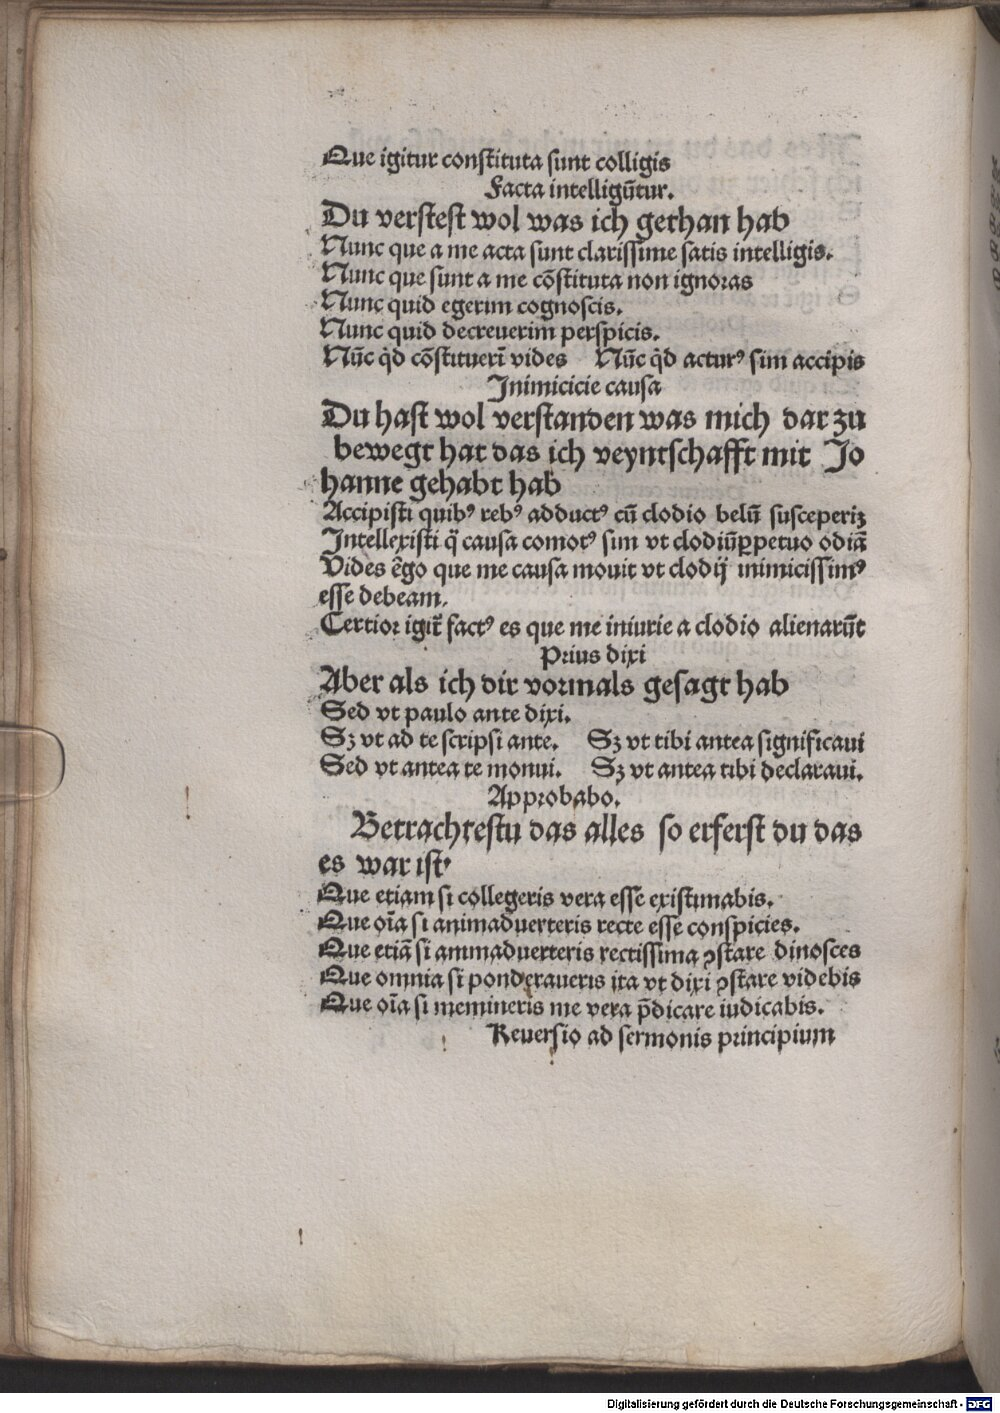 Que igitur constituta sunt colligis
Facta intelligūtur.
Du verstest wol was ich gethan hab
Nunc que a me acta sunt clarissime satis intelligis.
Nunc que sunt a me cōstituta non ignoras
Nunc quid egerim cognoscis.
Nunc quid decreuerim perspicis.
Nūc qͥd cōstituerī vides Nūc qͥd acturꝰ sim accipis
Inimicicie causa
Du hast wol verstanden was mich dar zu
bewegt hat das ich veyntschafft mit Jo
hanne gehabt hab
Accipisti quibꝰ rebꝰ adductꝰ cū clodio belū susceperiꝫ
Intellexisti q̄ causa comotꝰ sim vt clodiū ꝑpetuo odiā
Vides ēgo que me causa mouit vt clodij inimicissimꝰ
esse debeam.
Certior igit̄ factꝰ es que me iniurie a clodio alienarūt
Prius dixi
Aber als ich dir vormals gesagt hab
Sed vt paulo ante dixi.
Sꝫ vt ad te scripsi ante. Sꝫ vt tibi antea significaui
Sed vt antea te monui. Sꝫ vt antea tibi declaraui.
Approbabo.
Betrachtestu das alles so erferst du das
es war ist
Que etiam si collegeris vera esse existimabis.
Que oīa si animaduerteris recte esse conspicies.
Que etiā si animaduerteris rectissima ꝯstare dinosces
Que omnia si ponderaueris ita vt dixi ꝯstare videbis
Que oīa si memineris me vera p̄dicare iudicabis.
Reuersio ad sermonis principium
Digitalisierung gefördert durch die Deutsche Forschungsgemeinschaft - DFG